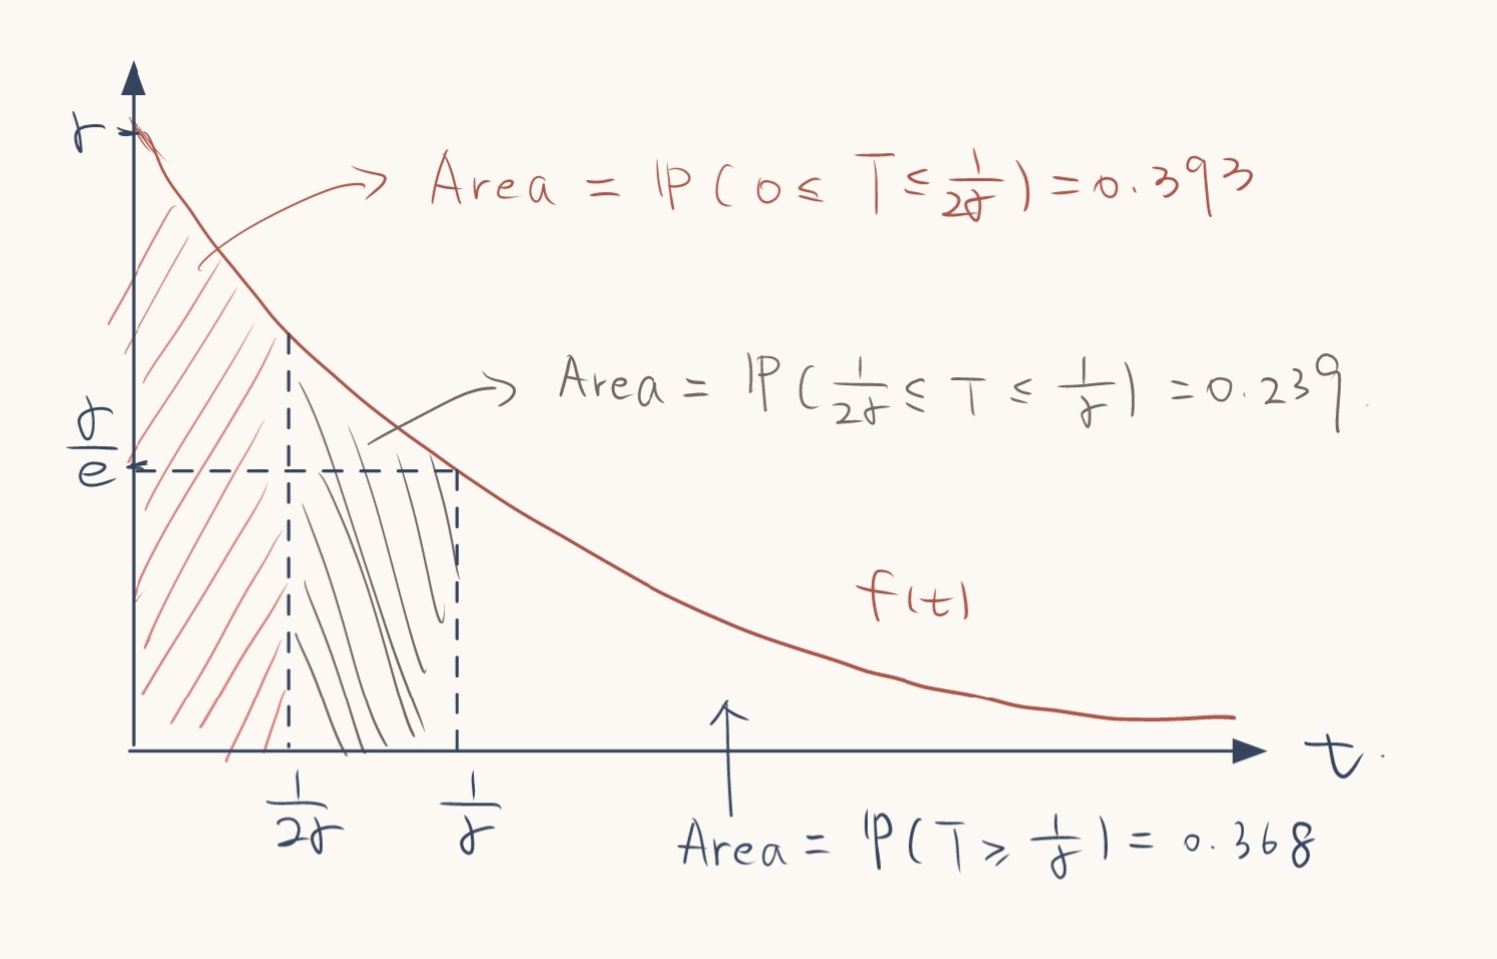 γ
Area = ℙ(0 ≤ T ≤ 1/2γ) = 0.393
Area = ℙ(1/2γ ≤ T ≤ 1/γ) = 0.239
γ/e
f(t)
t
1/2γ
1/γ
Area = ℙ(T ≥ 1/γ) = 0.368